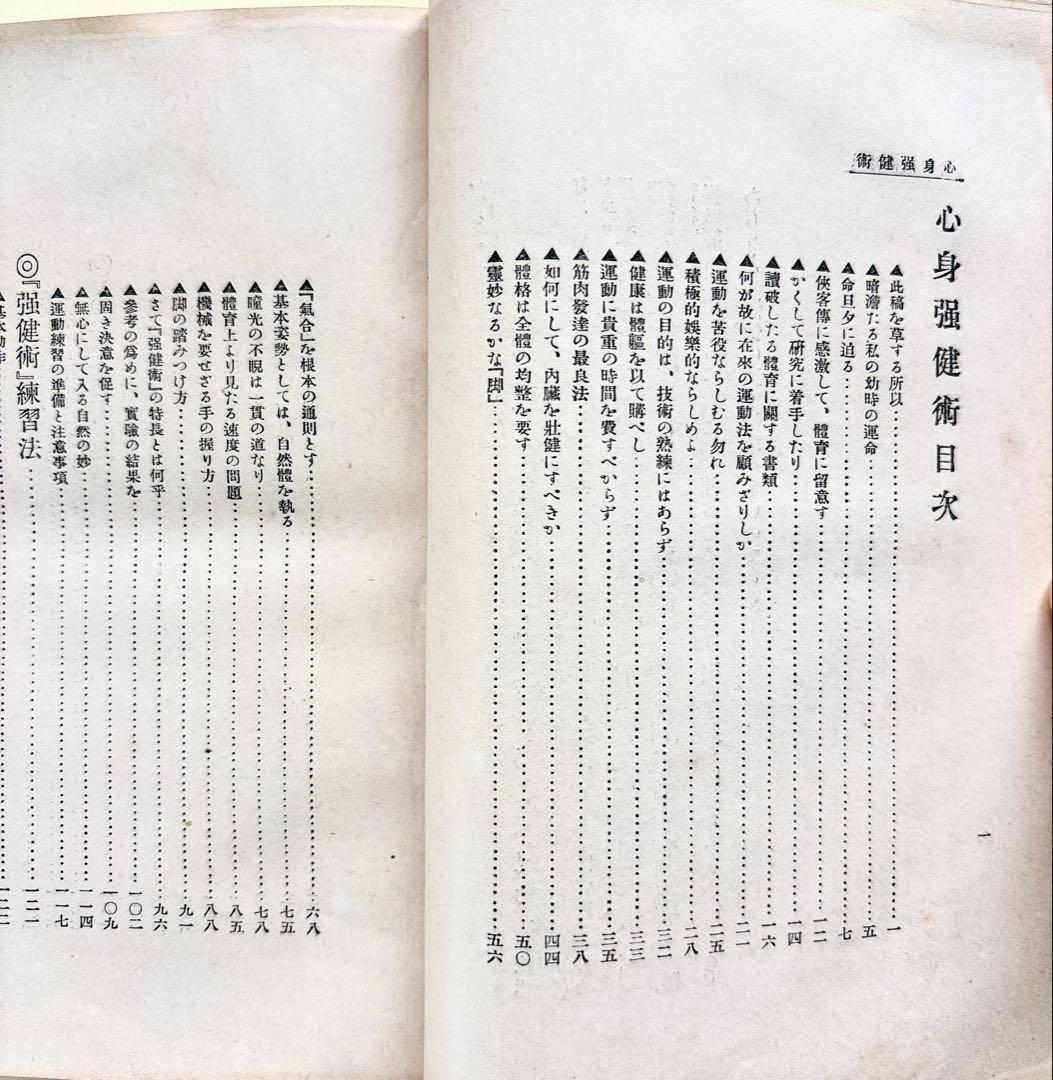 心身强健術
心身强健術目次
▲此稿を草する所以……一
▲暗澹たる私の幼時の運命……五
▲命旦夕に迫る……七
▲俠客傳に感激して、體育に留意す……一二
▲かくして研究に着手したり……一四
▲讀破したる體育に關する書類……一六
▲何が故に在來の運動法を顧みざりしか……二一
▲運動を苦役ならしむる勿れ……二五
▲積極的娛樂的ならしめよ……二八
▲運動の目的は、技術の熟練にはあらず……三二
▲健康は體軀を以て購べし……三三
▲運動に貴重の時間を費すべからず……三五
▲筋肉發達の最良法……三八
▲如何にして、內臟を壯健にすべきか……四四
▲體格は全體の均整を要す……五〇
▲靈妙なるかな『脚』……五六
一
▲『氣合』を根本の通則とす……六八
▲基本姿勢としては、自然體を執る……七五
▲瞳光の不睨は一貫の道なり……七八
▲體育上より見たる速度の問題……八五
▲機械を要せざる手の握り方……八八
▲脚の踏みつけ方……九一
▲さて『强健術』の特長とは何乎……九六
▲參考の爲めに、實驗の結果を……一〇二
▲固き決意を促す……一〇九
▲無心にして入る自然の妙……一一四
▲運動練習の準備と注意事項……一一七
◎『强健術』練習法……一二一
▲基本動作……一二二